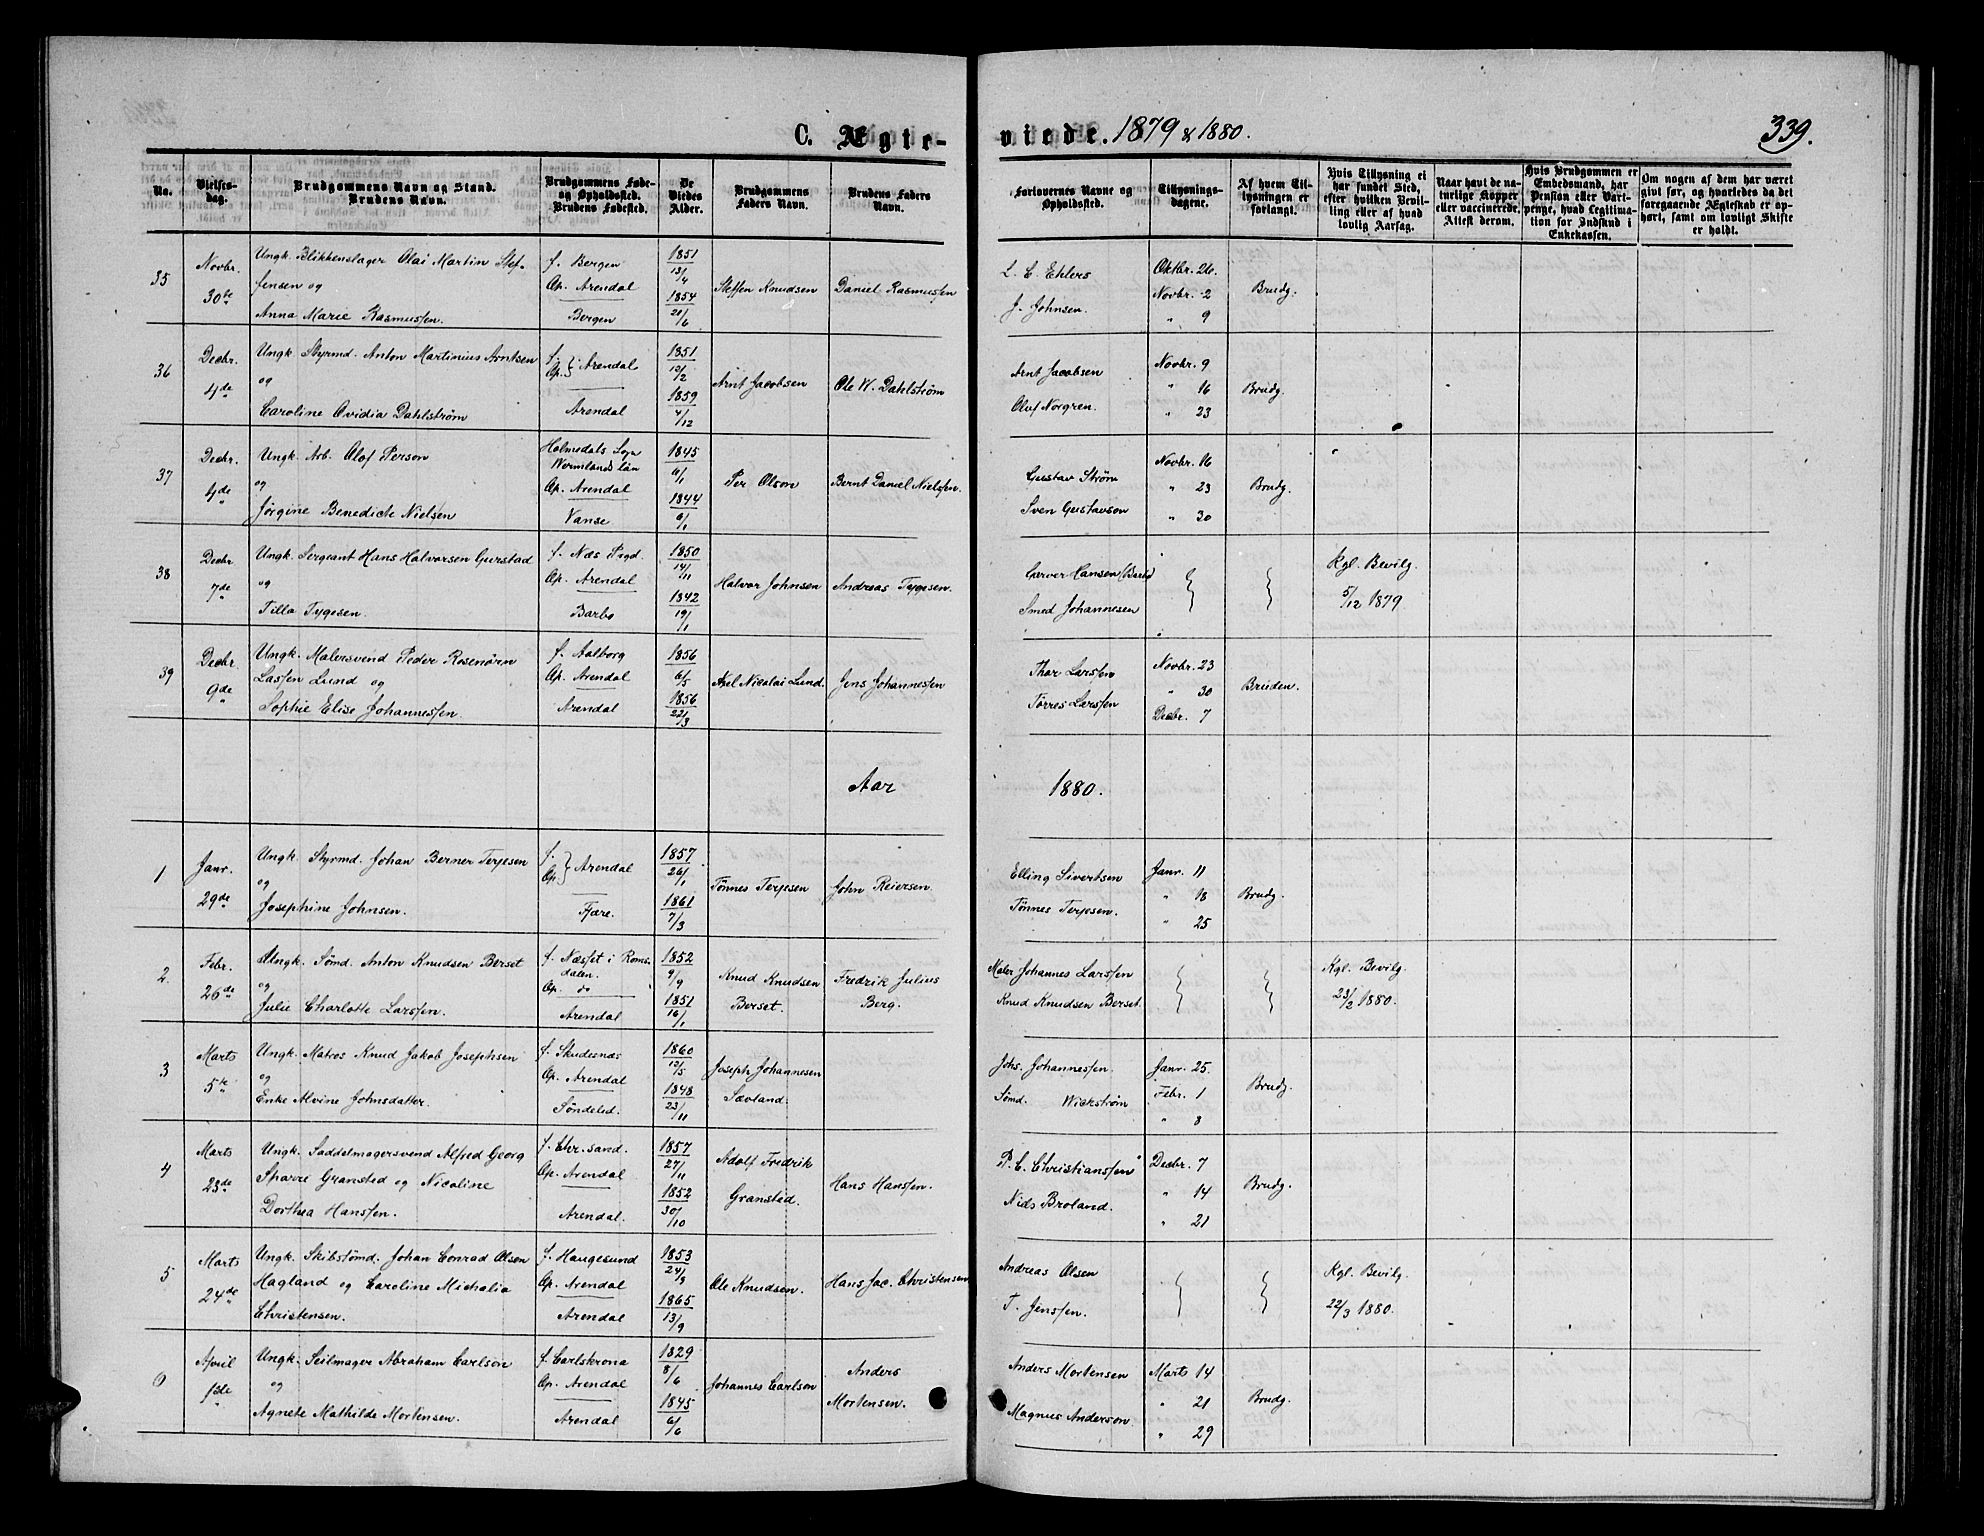 C. Ægte-
viede. 1879 & 1880.
339.
No.
Vielses-
dag.
Brudgommens Navn og Stand.
Brudens Navn.
Brudgommens Føde-
og Opholdssted.
Brudens Fødested.
De
Viedes
Alder.
Brudgommens
Faders Navn.
Brudens Faders
Navn.
Forlovernes Navne og
Opholdssted.
Tillysnings-
dagene.
Af hvem Til-
lysningen er
forlangt.
Hvis Tillysning ei
har fundet Sted,
efter hvilken Bevil-
ling eller af hvad
lovlig Aarsag.
Naar havt de na-
turlige Kopper
eller vaccinerede.
Attest derom.
Hvis Brudgommen er
Embedsmand, har
Pension eller Vart-
penge, hvad Legitima-
tion for Indskud i
Enkekassen.
Om nogen af dem har været
givt før, og hvorledes da det
foregaaende Ægteskab er op-
hørt, samt om lovligt Skifte
er holdt.
35
Novbr.
30te
Ungk. Blikkenslager Olai Martin Stef-
fensen og
Anna Marie Rasmussen.
f. Bergen
Op. Arendal
Bergen
1851
13/4
1854
21/6
Steffen Knudsen
Daniel Rasmussen
L. C. Ehlers
J. Johnsen.
Oktbr. 26.
Novbr. 2
" 9
Brudg.
36
Decbr.
4de
Ungk. Styrmd. Anton Martinius Arntsen
og
Caroline Ovidia Dahlstrøm
f.
Op. } Arendal
Arendal
1851
10/2
1859
4/12
Arnt Jacobsen
Ole W. Dahlstrøm
Arnt Jacobsen
Oluf Norgren.
Novbr. 9
" 16
" 23
Brudg.
37
Decbr.
4de
Ungk. Arb. Olof Person
og
Jørgine Benedicte Nielsen
Holmedals Sogn
Wermlands län
Op. Arendal
Vanse
1845
6/1
1844
6/1
Per Olson
Bernt Daniel Nielsen.
Gustav Strøm
Sven Gustavson
Novbr. 16
" 23
" 30
Brudg.
38
Decbr
7de
Ungk. Sergeant Hans Halvorsen Gurstad
og
Tilla Tygesen.
f. Næs Pgd.
Op. Arendal
Barbo
1850
14/11
1842
19/1
Halvor Johnsen
Andreas Tygesen.
Garver Hansen (Barbo)
Smed Johannesen
Kgl. Bevilg.
5/12 1879
39
Decbr.
9de
Ungk. Malersvend Peder Rosenørn
Lassen Lund og
Sophie Elise Johannessen.
f. Aalborg
Op. Arendal
Arendal
1856
6/5
1856
22/3
Axel Nicolai Lund.
Jens Johannessen
Thor Larssen
Tørres Larssen
Novbr. 23
" 30
Decbr. 7
Bruden.
Aar
1880.
1
Janr.
29de
Ungk. Styrmd. Johan Berner Terjesen
og
Josephine Johnsen.
f.
Op. } Arendal
Fjære.
1857
26/1
1861
7/3
Tønnes Terjesen
John Reiersen.
Elling Sivertsen
Tønnes Terjesen.
Janr. 11
" 18
" 25
Brudg.
2
Febr.
26de
Ungk. Sømd. Anton Knudsen Berset
og
Julie Charlotte Larssen.
f. Næsset i Roms-
dalen.
Op. do
Arendal
1852
9/9
1851
16/1
Knud Knudsen
Berset.
Fredrik Julius
Berg.
Maler Johannes Larssen
Knud Knudsen Berset.
Kgl. Bevilg.
23/2 1880.
3
Marts
5te
Ungk. Matros Knud Jakob Josephsen
og
Enke Alvine Johnsdatter.
f. Skudesnæs
Op. Arendal
Søndeled.
1860
10/5
1848
23/11
Joseph Johannesen
Sævland.
Johs. Johannessen.
Sømd. Wickstrøm
Janr. 25.
Febr. 1
" 8
Brudg.
4
Marts
23de
Ungk. Saddelmagersvend Alfred Georg
Sparre Gransted og Nicoline
Dorthea Hanssen.
f. Chr.sand.
Op. Arendal
Arendal.
1857
27/11
1852
30/10
Adolf Fredrik
Gransted.
Hans Hanssen.
P. C. Christianssen
Niels Broland.
Decbr. 7
" 14
" 21
Brudg.
5
Marts
24de
Ungk. Skibstømd. Johan Conrad Olsen
Hagland og Caroline Michalia
Christensen.
f. Haugesund
Op. Arendal
Arendal
1853
24/3
1865
13/9
Ole Knudsen.
Hans Jac. Christensen
Andreas Olsen
T. Jenssen.
Kgl. Bevilg.
22/3 1880.
6
April
1ste
Ungk. Seilmager Abraham Carlson
og
Agnete Mathilde Mortensen.
f. Carlskrona
Op. Arendal
Arendal
1829
8/6
1845
6/6
Johannes Carlson
Anders
Mortensen.
Anders Mortensen
Magnus Anderson.
Marts 14
" 21
" 29
Brudg.